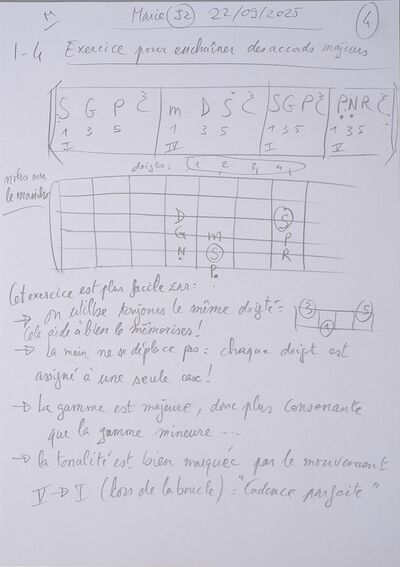 M Marie (S2) 22/09/2025 4
1-4 Exercice pour enchaîner des accords majeurs
S G P m D S S G P P N R
1 3 5 1 3 5 1 3 5 1 3 5
I IV I V
doigts: 1 2 3 4
notes sur
le manche
D S
G m P
N S R
P
Cet exercice est plus facile car:
→ on utilise toujours le même doigté: 3 5
1
Cela aide à bien le mémoriser!
→ la main ne se déplace pas: chaque doigt est
assigné à une seule case!
→ La gamme est majeure, donc plus consonante
que la gamme mineure ...
→ la tonalité est bien marquée par le mouvement
V → I (lors de la boucle) = "Cadence parfaite"